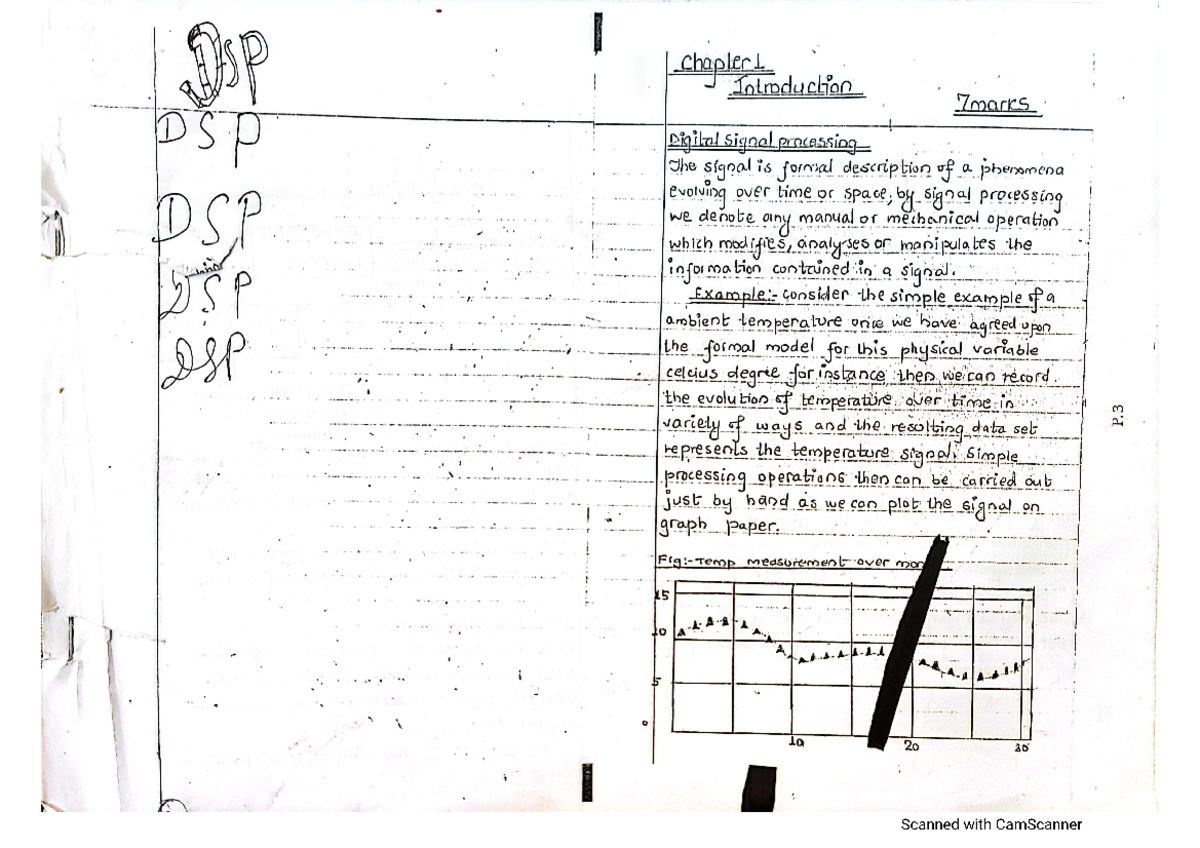 DSP
DSP
DSP
DSP
DSP
Chapter 1
Introduction
7marks
Digital Signal processing
The signal is formal description of a phenomena
evolving over time or space, by signal processing
we denote any manual or mechanical operation
which modifies, analyses or manipulates the
information contained in a signal.
Example:- consider the simple example of a
ambient temperature once we have agreed upon
the formal model for this physical variable
celcius degree for instance then we can record
the evolution of temperature over time in
variety of ways and the resulting data set
represents the temperature signal. Simple
processing operations then can be carried out
just by hand as we can plot the signal on
graph paper.
P.3
Fig:- Temp measurement over
15
10
5
0
10 20 30
Scanned with CamScanner